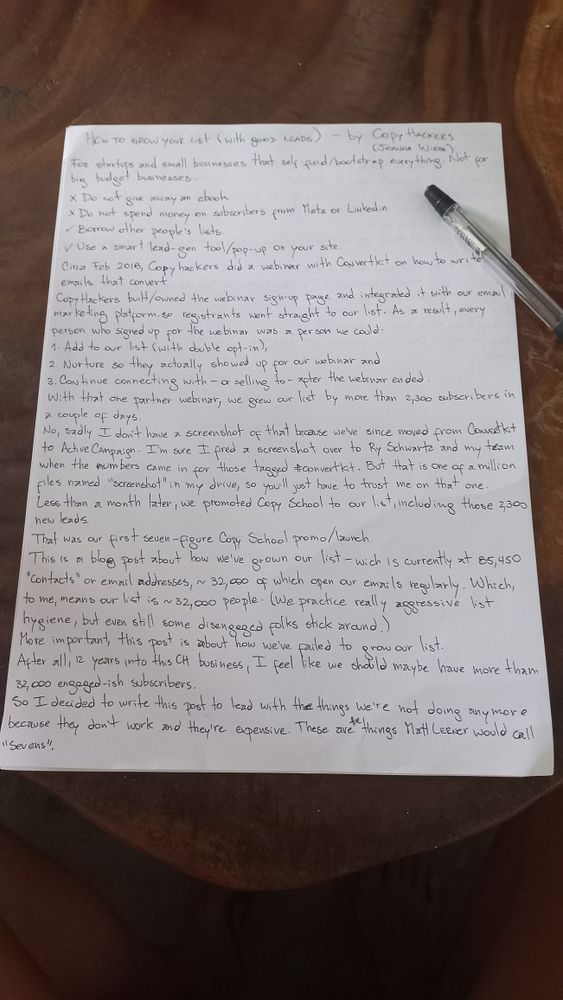 HOW TO GROW YOUR LIST (WITH GOOD LEADS) - by COPYHACKERS
(JOANNA WIEBE)
For startups and small businesses that self-fund/bootstrap everything. Not for
big budget businesses.
x Do not give away an ebook
x Do not spend money on subscribers from Meta or Linkedin
✓ Borrow other people's lists.
✓ Use a smart lead-gen tool/pop-up on your site.
Circa Feb 2018, Copyhackers did a webinar with Convertkit on how to write
emails that convert.
CopyHackers built/owned the webinar sign-up page and integrated it with our email
marketing platform so registrants went straight to our list. As a result, every
person who signed up for the webinar was a person we could:
1. Add to our list (with double opt-in),
2. Nurture so they actually showed up for our webinar and
3. Continue connecting with - or selling to - after the webinar ended.
With that one partner webinar, we grew our list by more than 2,300 subscribers in
a couple of days.
No, sadly I don't have a screenshot of that because we've since moved from Convertkit
to ActiveCampaign. I'm sure I fired a screenshot over to Ry Schwartz and my team
when the numbers came in for those tagged #convertkit. But that is one of a million
files named "screenshot" in my drive, so you'll just have to trust me on that one.
Less than a month later, we promoted Copy School to our list, including those 2,300
new leads.
That was our first seven-figure Copy School promo/launch.
This is a blog post about how we've grown our list - wich is currently at 85,450
"contacts" or email addresses, ~ 32,000 of which open our emails regularly. Which,
to me, means our list is ~32,000 people. (We practice really aggressive list
hygiene, but even still some disengaged folks stick around.)
More important, this post is about how we've failed to grow our list.
After all, 12 years into this CH business, I feel like we should maybe have more than
32,000 engaged-ish subscribers.
So I decided to write this post to lead with the things we're not doing anymore
because they don't work and they're expensive. These are the things Matt Lerner would call
"Sevens".